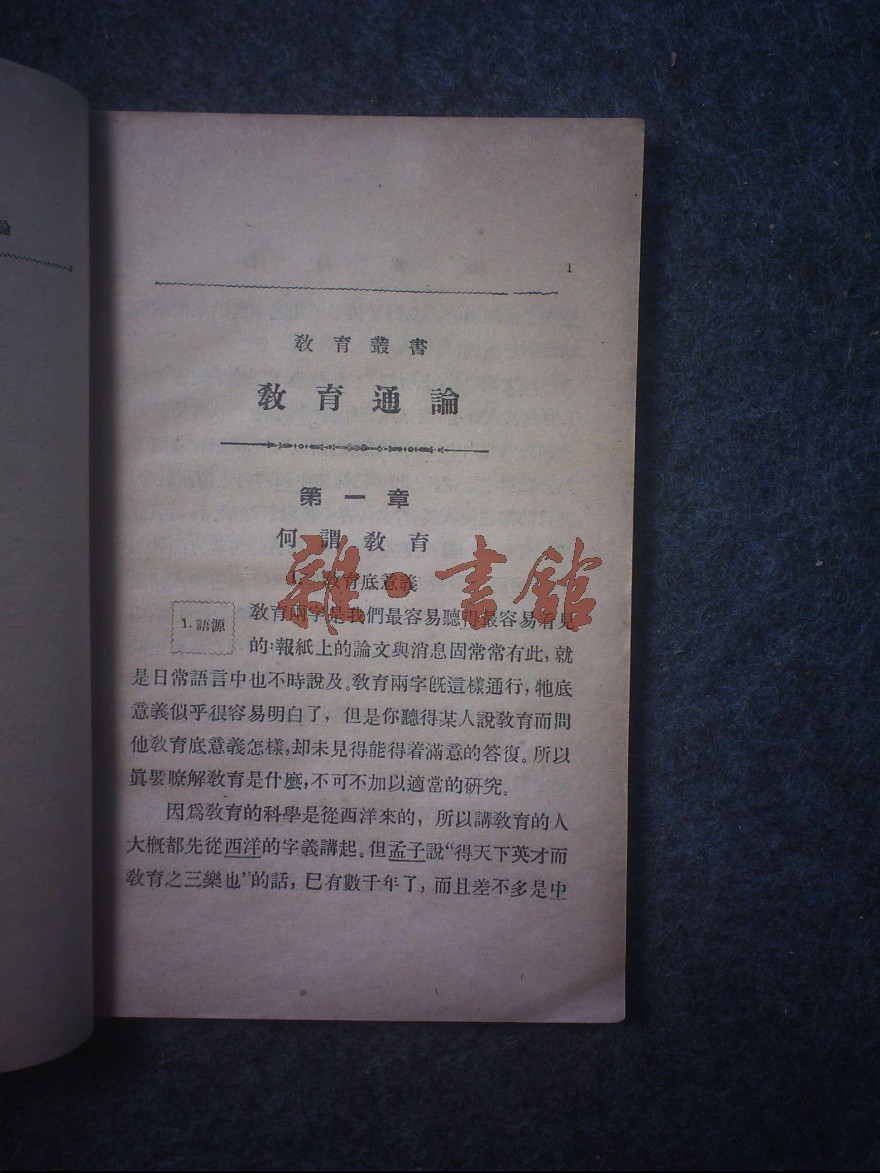 論
1
教育叢書
教育通論
第一章
何謂教育
教育底意義
1.語源
教育兩字是我們最容易聽得最容易看見
的:報紙上的論文與消息固常常有此,就
是日常語言中也不時說及。教育兩字旣這樣通行,牠底
意義似乎很容易明白了,但是你聽得某人說教育而問
他教育底意義怎樣,却未見得能得着滿意的答復。所以
眞要瞭解教育是什麽,不可不加以適當的硏究。
因爲教育的科學是從西洋來的,所以講教育的人
大概都先從西洋的字義講起。但孟子說“得天下英才而
教育之三樂也”的話,巳有數千年了,而且差不多是中
雜·書館